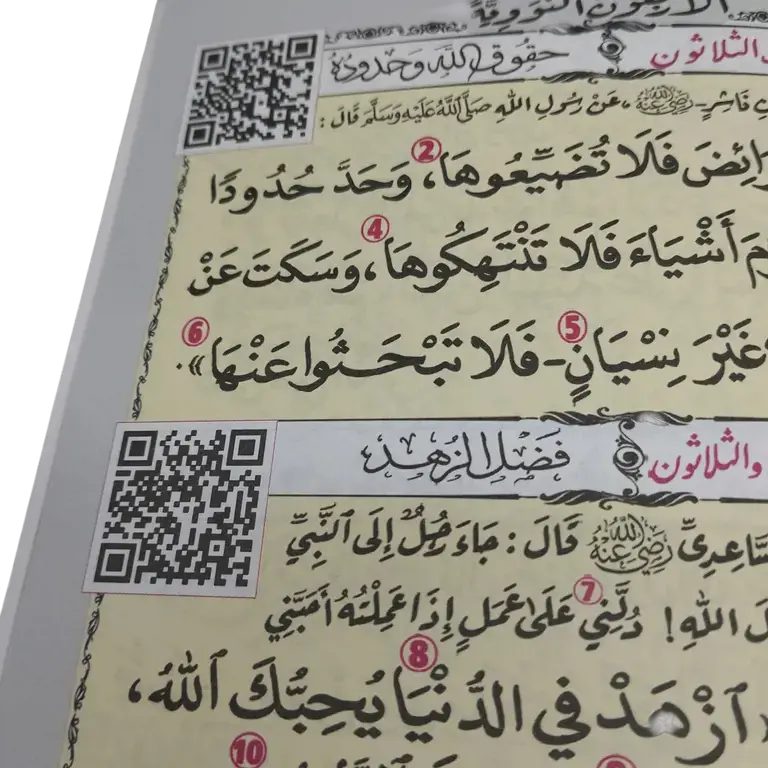 الأربعون النووية
الثلاثون حقوق الله وحدوده
ناشر - رضي الله عنه، عَنْ رَسُولِ اللهِ صَلَّى اللهُ عَلَيْهِ وَسَلَّمَ قَالَ:
فَلَا تُضَيِّعُوهَا ②، وَحَدَّ حُدُودًا
أَشْيَاءَ فَلَا تَنْتَهِكُوهَا ④، وَسَكَتَ عَنْ
غَيْرَ نِسْيَانٍ ⑤ - فَلَا تَبْحَثُوا عَنْهَا ⑥».
والثلاثون فضل الزهد
رضي الله عنه قَالَ: جَاءَ رَجُلٌ إِلَى النَّبِيِّ
اللهِ! دُلَّنِي ⑦ عَلَى عَمَلٍ إِذَا عَمِلْتُهُ أَحَبَّنِي
ٱزْهَدْ فِي الدُّنْيَا ⑧ يُحِبُّكَ ٱللهُ،
⑩